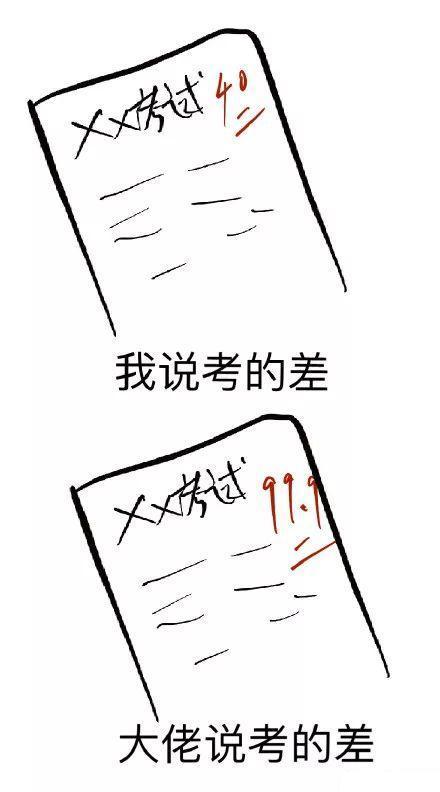 XX考试 40
我说考的差
XX考试 99.9
大佬说考的差